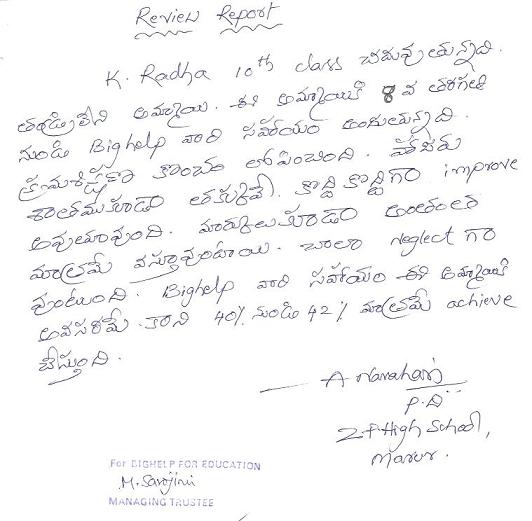 Review Report
K. Radha 10th class చదువుతున్నది.
తండ్రిలేని అమ్మాయి. ఈ అమ్మాయికి 8 వ తరగతి
నుండి Bighelp వారి సహాయం అందుతున్నది.
క్రమశిక్షణ కొంచం లోపించింది. హాజరు
శాతముకూడా తక్కువే. కొద్ది కొద్దిగా improve
అవుతూవుంది. మార్కులుకూడా అంతంత
మాత్రమే వస్తూవుంటాయి. చాలా neglect గా
వుంటుంది. Bighelp వారి సహాయం ఈ అమ్మాయికి
అవసరమే. కాని 40% నుండి 42% మాత్రమే achieve
చేస్తుంది.
A. Narahari
P.D
Z.P High School,
Marur.
For BIGHELP FOR EDUCATION
M. Sarojini
MANAGING TRUSTEE